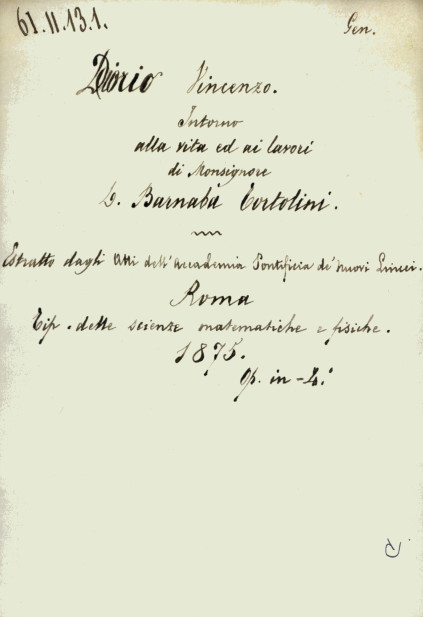 61.II.13.1.
Gen.
Diorio Vincenzo.
Intorno
alla vita ed ai lavori
di Monsignore
D. Barnaba Tortolini.
Estratto dagli Atti dell'Accademia Pontificia de' Nuovi Lincei.
Roma
Tip. delle scienze matematiche e fisiche.
1875.
Op. in-4.°